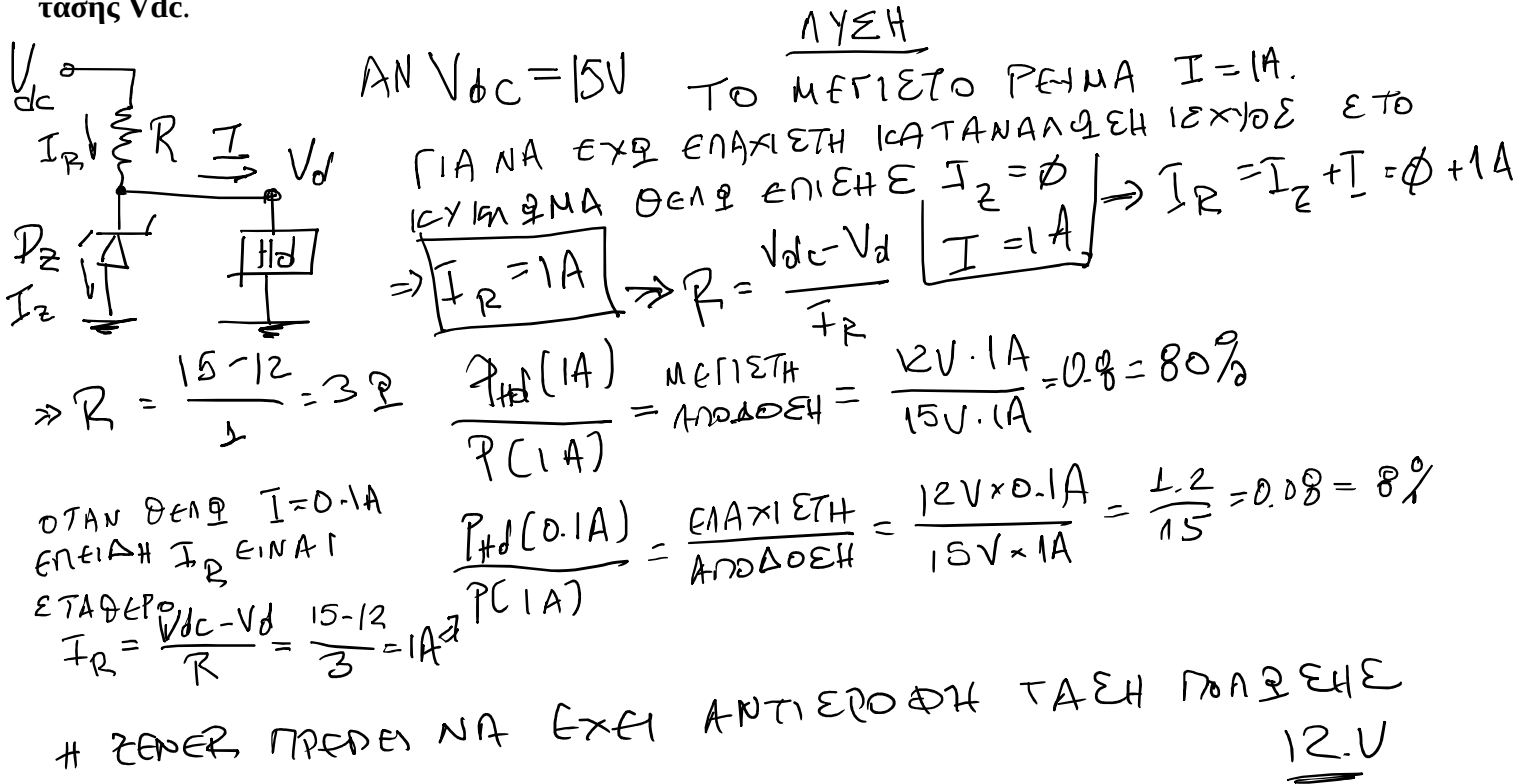 τασης Vdc.
ΛΥΣΗ
Vdc
ΑΝ Vdc = 15V ΤΟ ΜΕΓΙΣΤΟ ΡΕΥΜΑ I = 1A.
IR R I Vd
ΓΙΑ ΝΑ ΕΧΩ ΕΛΑΧΙΣΤΗ ΚΑΤΑΝΑΛΩΣΗ ΙΣΧΥΟΣ ΣΤΟ
ΚΥΚΛΩΜΑ ΘΕΛΩ ΕΠΙΣΗΣ Iz = 0 I = 1A ⇒ IR = Iz + I = 0 + 1A
Dz Iz Hd
⇒ IR = 1A ⇒ R = Vdc - Vd / IR
⇒ R = 15 - 12 / 1 = 3 Ω
PHd(1A) / P(1A) = ΜΕΓΙΣΤΗ ΑΠΟΔΟΣΗ = 12V · 1A / 15V · 1A = 0.8 = 80%
ΟΤΑΝ ΘΕΛΩ I = 0.1A
ΕΠΕΙΔΗ IR ΕΙΝΑΙ
ΣΤΑΘΕΡΟ
IR = Vdc - Vd / R = 15 - 12 / 3 = 1A ⇒
PHd(0.1A) / P(1A) = ΕΛΑΧΙΣΤΗ ΑΠΟΔΟΣΗ = 12V × 0.1A / 15V × 1A = 1.2 / 15 = 0.08 = 8%
Η ZENER ΠΡΕΠΕΙ ΝΑ ΕΧΕΙ ΑΝΤΙΣΡΟΦΗ ΤΑΣΗ ΠΟΛΩΣΗΣ
12.V